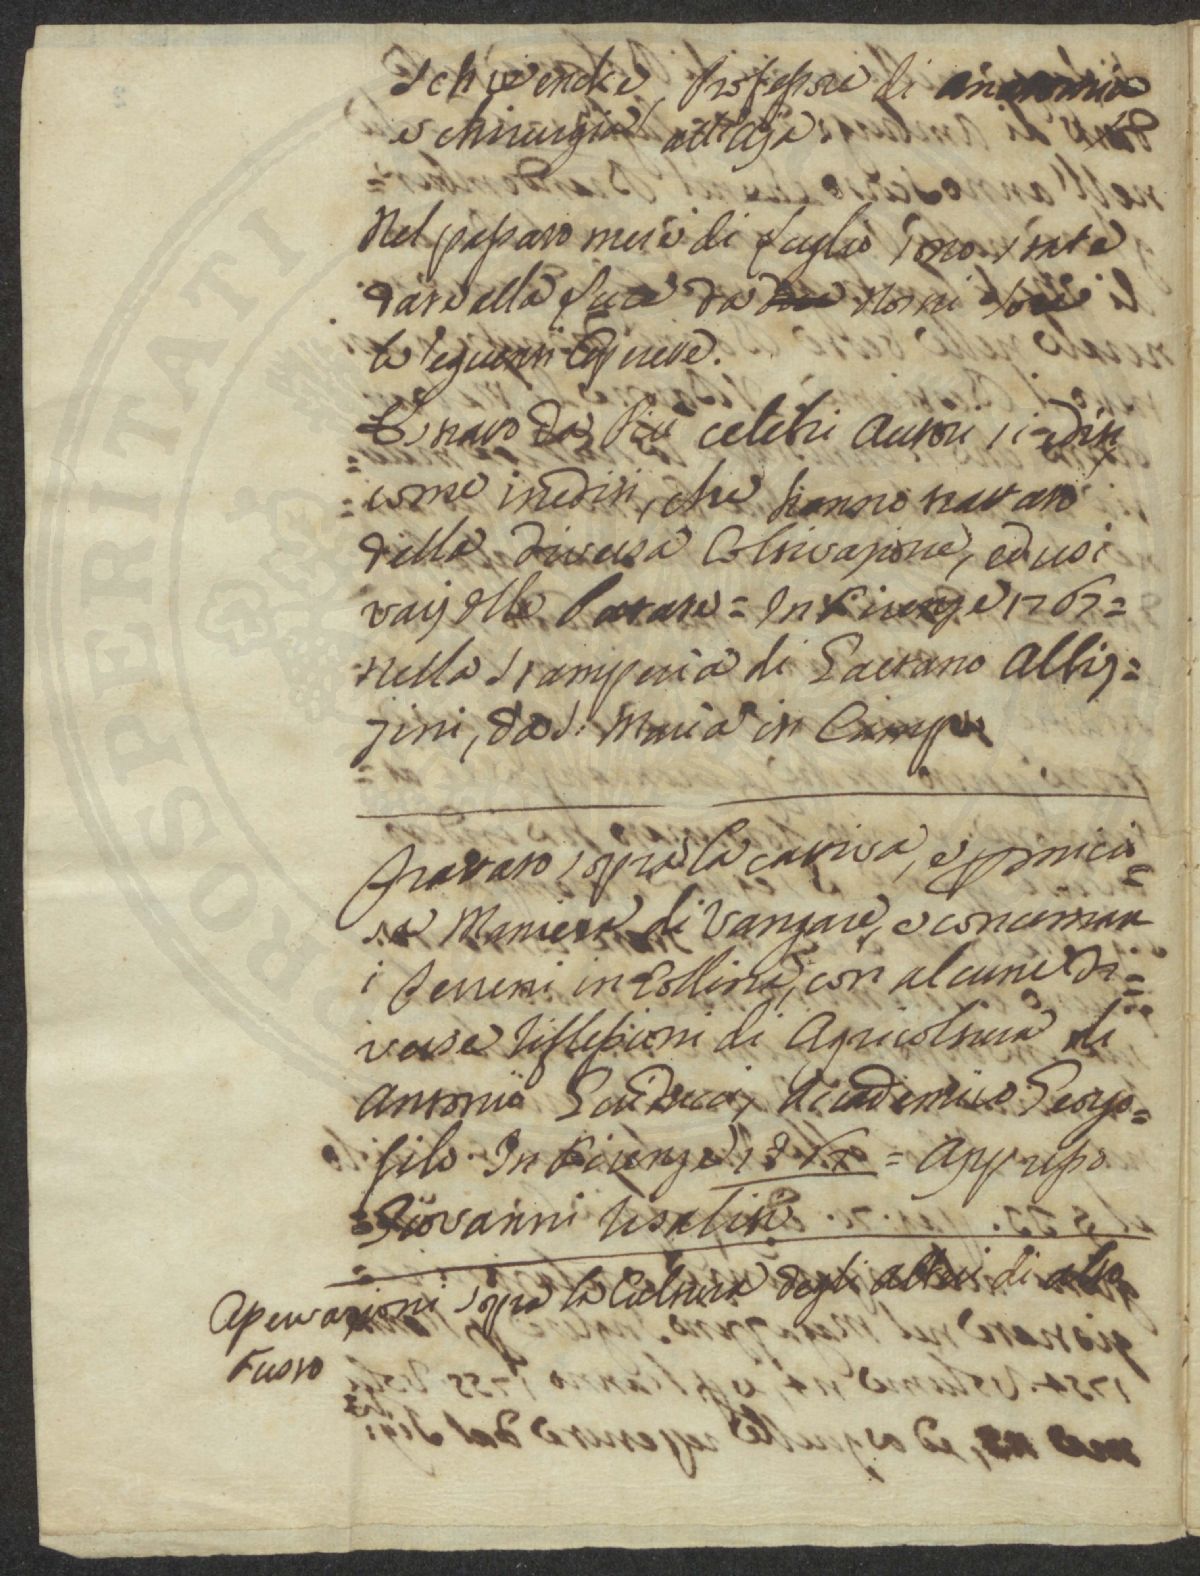 Schwencke, Professore di anatomia
e chirurgia all'Aja
Nel passato mese di Luglio sono state
date alla luce da nostri
le seguenti Operette.
Estratto da Più celebri Autori si edit
come inediti, che hanno trattato
della diversa Coltivazione, ed usi
varj delle Patate = In Firenze 1767 =
nella Stamperia di Gaetano Albiz=
zini, da S. Maria in Campo
Trattato sopra la cattiva, e pernicio=
sa Maniera di Vangare, e concimare
i Terreni in Collina, con alcune di=
verse riflessioni di Agricoltura di
Antonio Accademico Georgo=
filo In Firenze 1767 = Appresso
=Giovanni Risaliti
Osservazioni sopra la Cultura degli alberi di alto
Fusto
PROSPERITATI